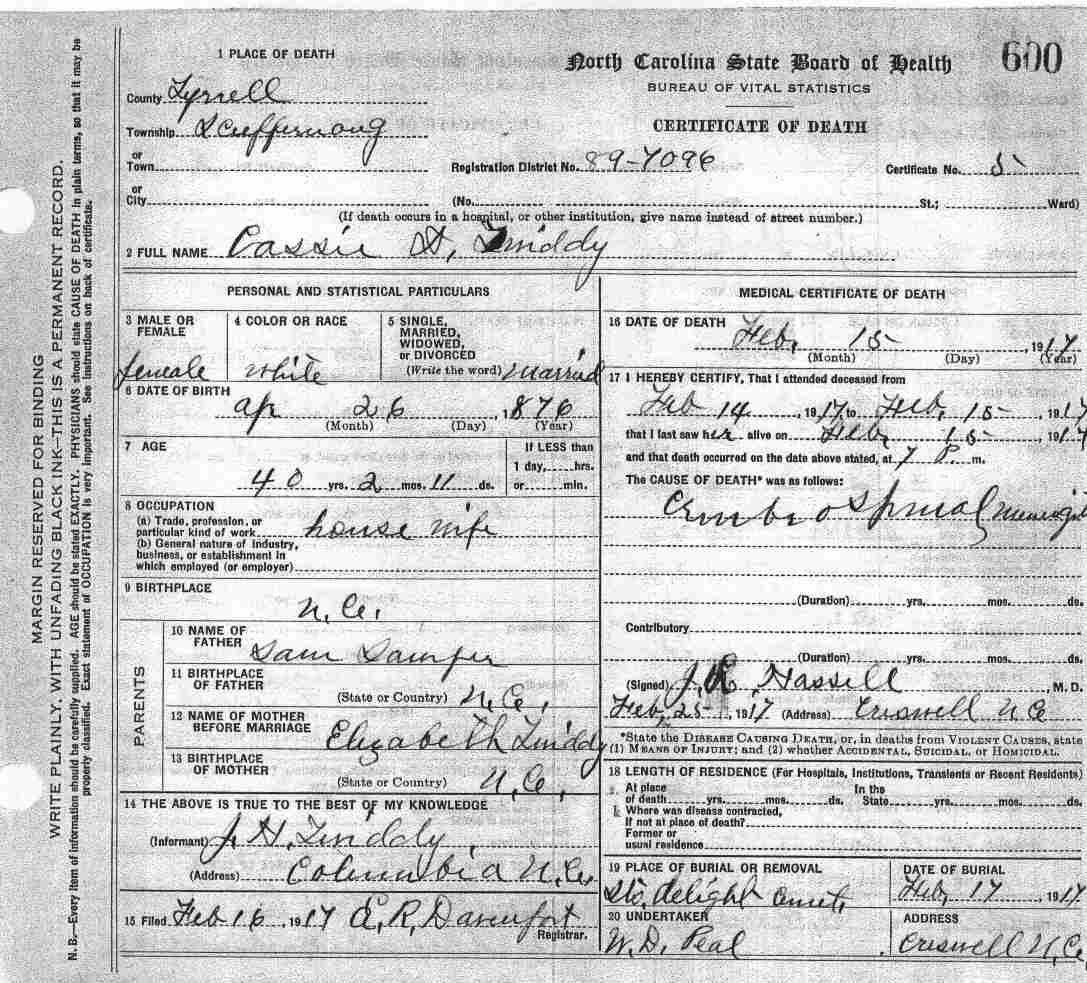 600
North Carolina State Board of Health
BUREAU OF VITAL STATISTICS
CERTIFICATE OF DEATH
1 PLACE OF DEATH
County Tyrrell
Township Scuppernong
or
Town
or
City
Registration District No. 89-7096 Certificate No. 5
(No. St.; Ward)
(If death occurs in a hospital, or other institution, give name instead of street number.)
2 FULL NAME Cassie H. Liniddy
PERSONAL AND STATISTICAL PARTICULARS
3 MALE OR FEMALE female
4 COLOR OR RACE white
5 SINGLE, MARRIED, WIDOWED, or DIVORCED (Write the word) married
6 DATE OF BIRTH ap 26, 1876
(Month) (Day) (Year)
7 AGE
40 yrs. 2 mos. 11 ds.
If LESS than
1 day, hrs.
or min.
8 OCCUPATION
(a) Trade, profession, or particular kind of work house wife
(b) General nature of industry, business, or establishment in which employed (or employer)
9 BIRTHPLACE
N.C.
PARENTS
10 NAME OF FATHER Sam
11 BIRTHPLACE OF FATHER
(State or Country) N.C.
12 NAME OF MOTHER BEFORE MARRIAGE Elizabeth Liniddy
13 BIRTHPLACE OF MOTHER
(State or Country) N.C.
14 THE ABOVE IS TRUE TO THE BEST OF MY KNOWLEDGE
(Informant) J. H. Liniddy
(Address) Columbia N.C.
15 Filed Feb 16 1917 E. R. Davenport
Registrar.
MEDICAL CERTIFICATE OF DEATH
16 DATE OF DEATH Feb. 15, 1917
(Month) (Day) (Year)
17 I HEREBY CERTIFY, That I attended deceased from
Feb 14, 1917, to Feb. 15 1917
that I last saw her alive on Feb. 15 1917
and that death occurred on the date above stated, at 7 P. m.
The CAUSE OF DEATH* was as follows:
spinal
(Duration) yrs. mos. ds.
Contributory
(Duration) yrs. mos. ds.
(Signed) J. L. Hassell, M. D.
Feb 25, 1917 (Address) Creswell N C
*State the DISEASE CAUSING DEATH, or, in deaths from VIOLENT CAUSES, state
(1) MEANS OF INJURY; and (2) whether ACCIDENTAL, SUICIDAL, or HOMICIDAL.
18 LENGTH OF RESIDENCE (For Hospitals, Institutions, Transients or Recent Residents)
At place of death yrs. mos. ds. In the State yrs. mos. ds.
Where was disease contracted,
If not at place of death?
Former or
usual residence
19 PLACE OF BURIAL OR REMOVAL
delight
DATE OF BURIAL
Feb, 17 1917
20 UNDERTAKER
W. D. Peal
ADDRESS
Creswell N.C.
MARGIN RESERVED FOR BINDING
WRITE PLAINLY, WITH UNFADING BLACK INK—THIS IS A PERMANENT RECORD.
N. B.—Every item of information should be carefully supplied. AGE should be stated EXACTLY. PHYSICIANS should state CAUSE OF DEATH in plain terms, so that it may be
properly classified. Exact statement of OCCUPATION is very important. See instructions on back of certificate.